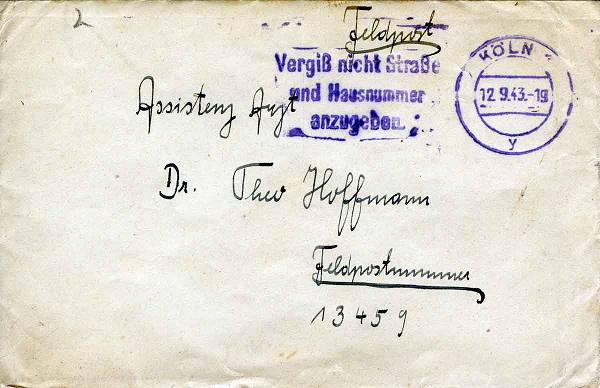 2
Feldpost
Vergiß nicht Straße
und Hausnummer
anzugeben.
KÖLN
12.9.43.-19
y
Assistenz Arzt
Dr. Theo Hoffmann
Feldpostnummer
13459